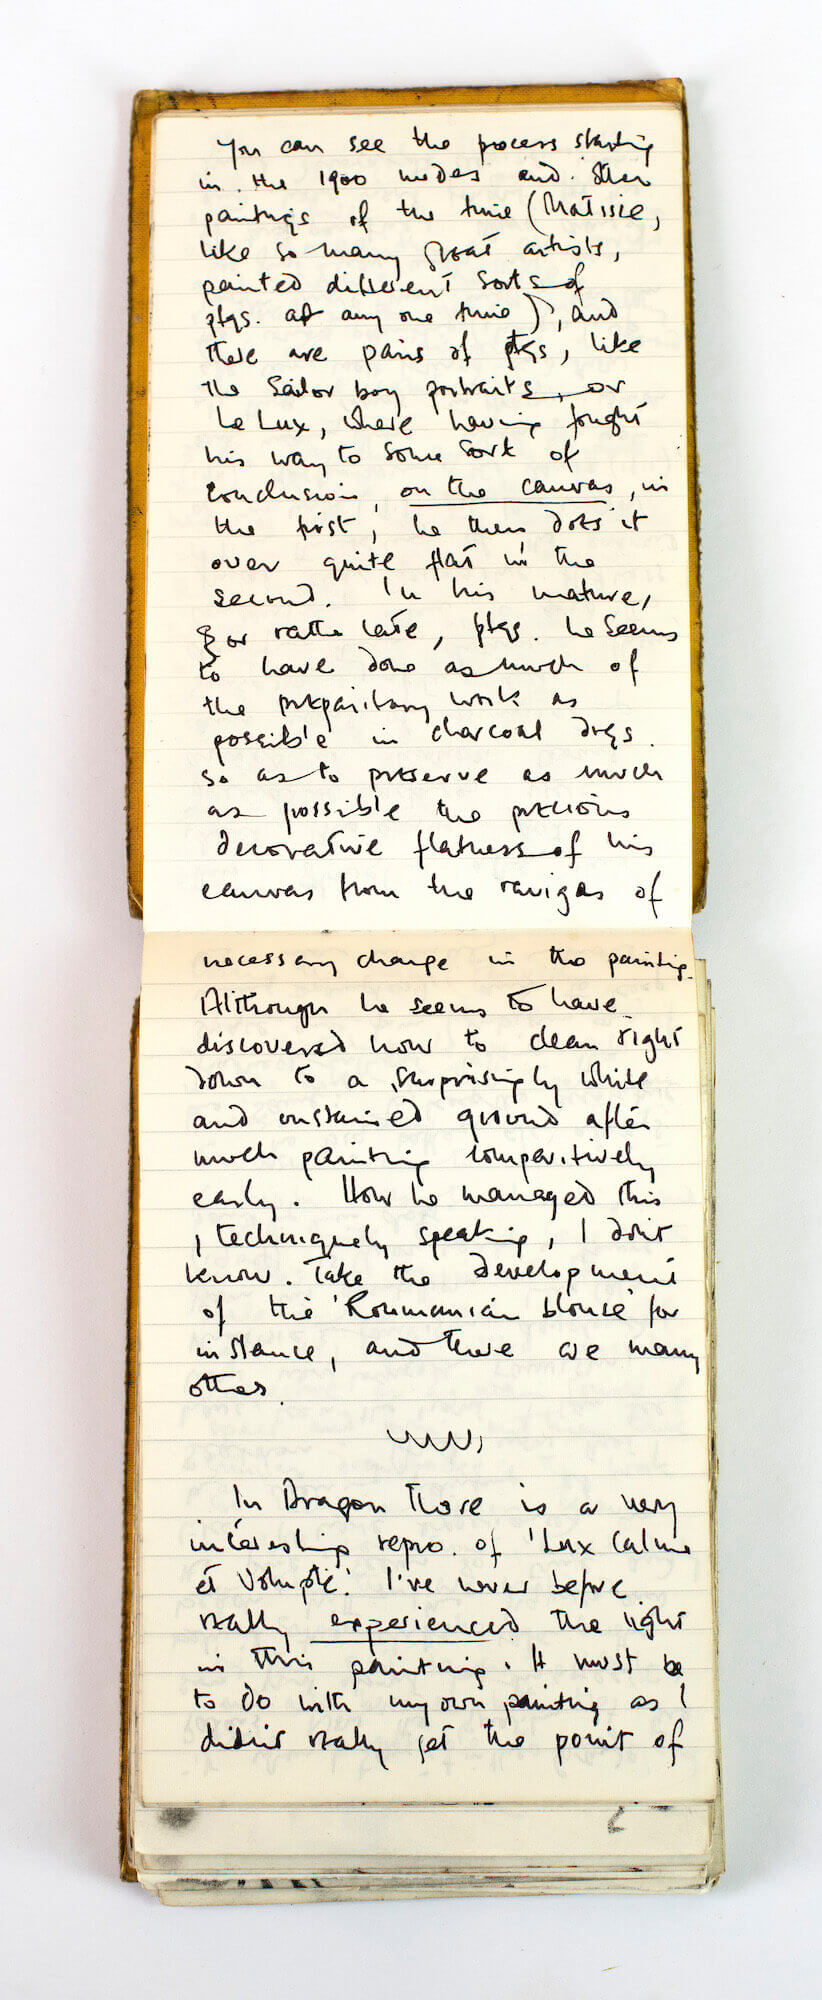 You can see the process starting
in the 1900 nudes and other
paintings of the time (Matisse,
like so many great artists,
painted different sorts of
ptgs. at any one time), and
there are pairs of ptgs, like
the Sailor boy portraits, or
Le Lux, where having fought
his way to some sort of
conclusion, on the canvas, in
the first, he then does it
over quite flat in the
second. In his mature,
or rather late, ptgs. he seems
to have done as much of
the preparitory work as
possible in charcoal drgs.
so as to preserve as much
as possible the precious
decorative flatness of his
canvas from the raviges of
necessary change in the painting.
Although he seems to have
discovered how to clean right
down to a surprisingly white
and unstained ground after
much painting comparitively
early. How he managed this
, techniquely speaking, I don't
know. Take the development
of the 'Roumanian blouse' for
instance, and there are many
others.
In Aragon there is a very
interesting repro. of 'Lux Calme
et Volupté'. I've never before
really experienced the light
in this painting. It must be
to do with my own painting as I
didn't really get the point of